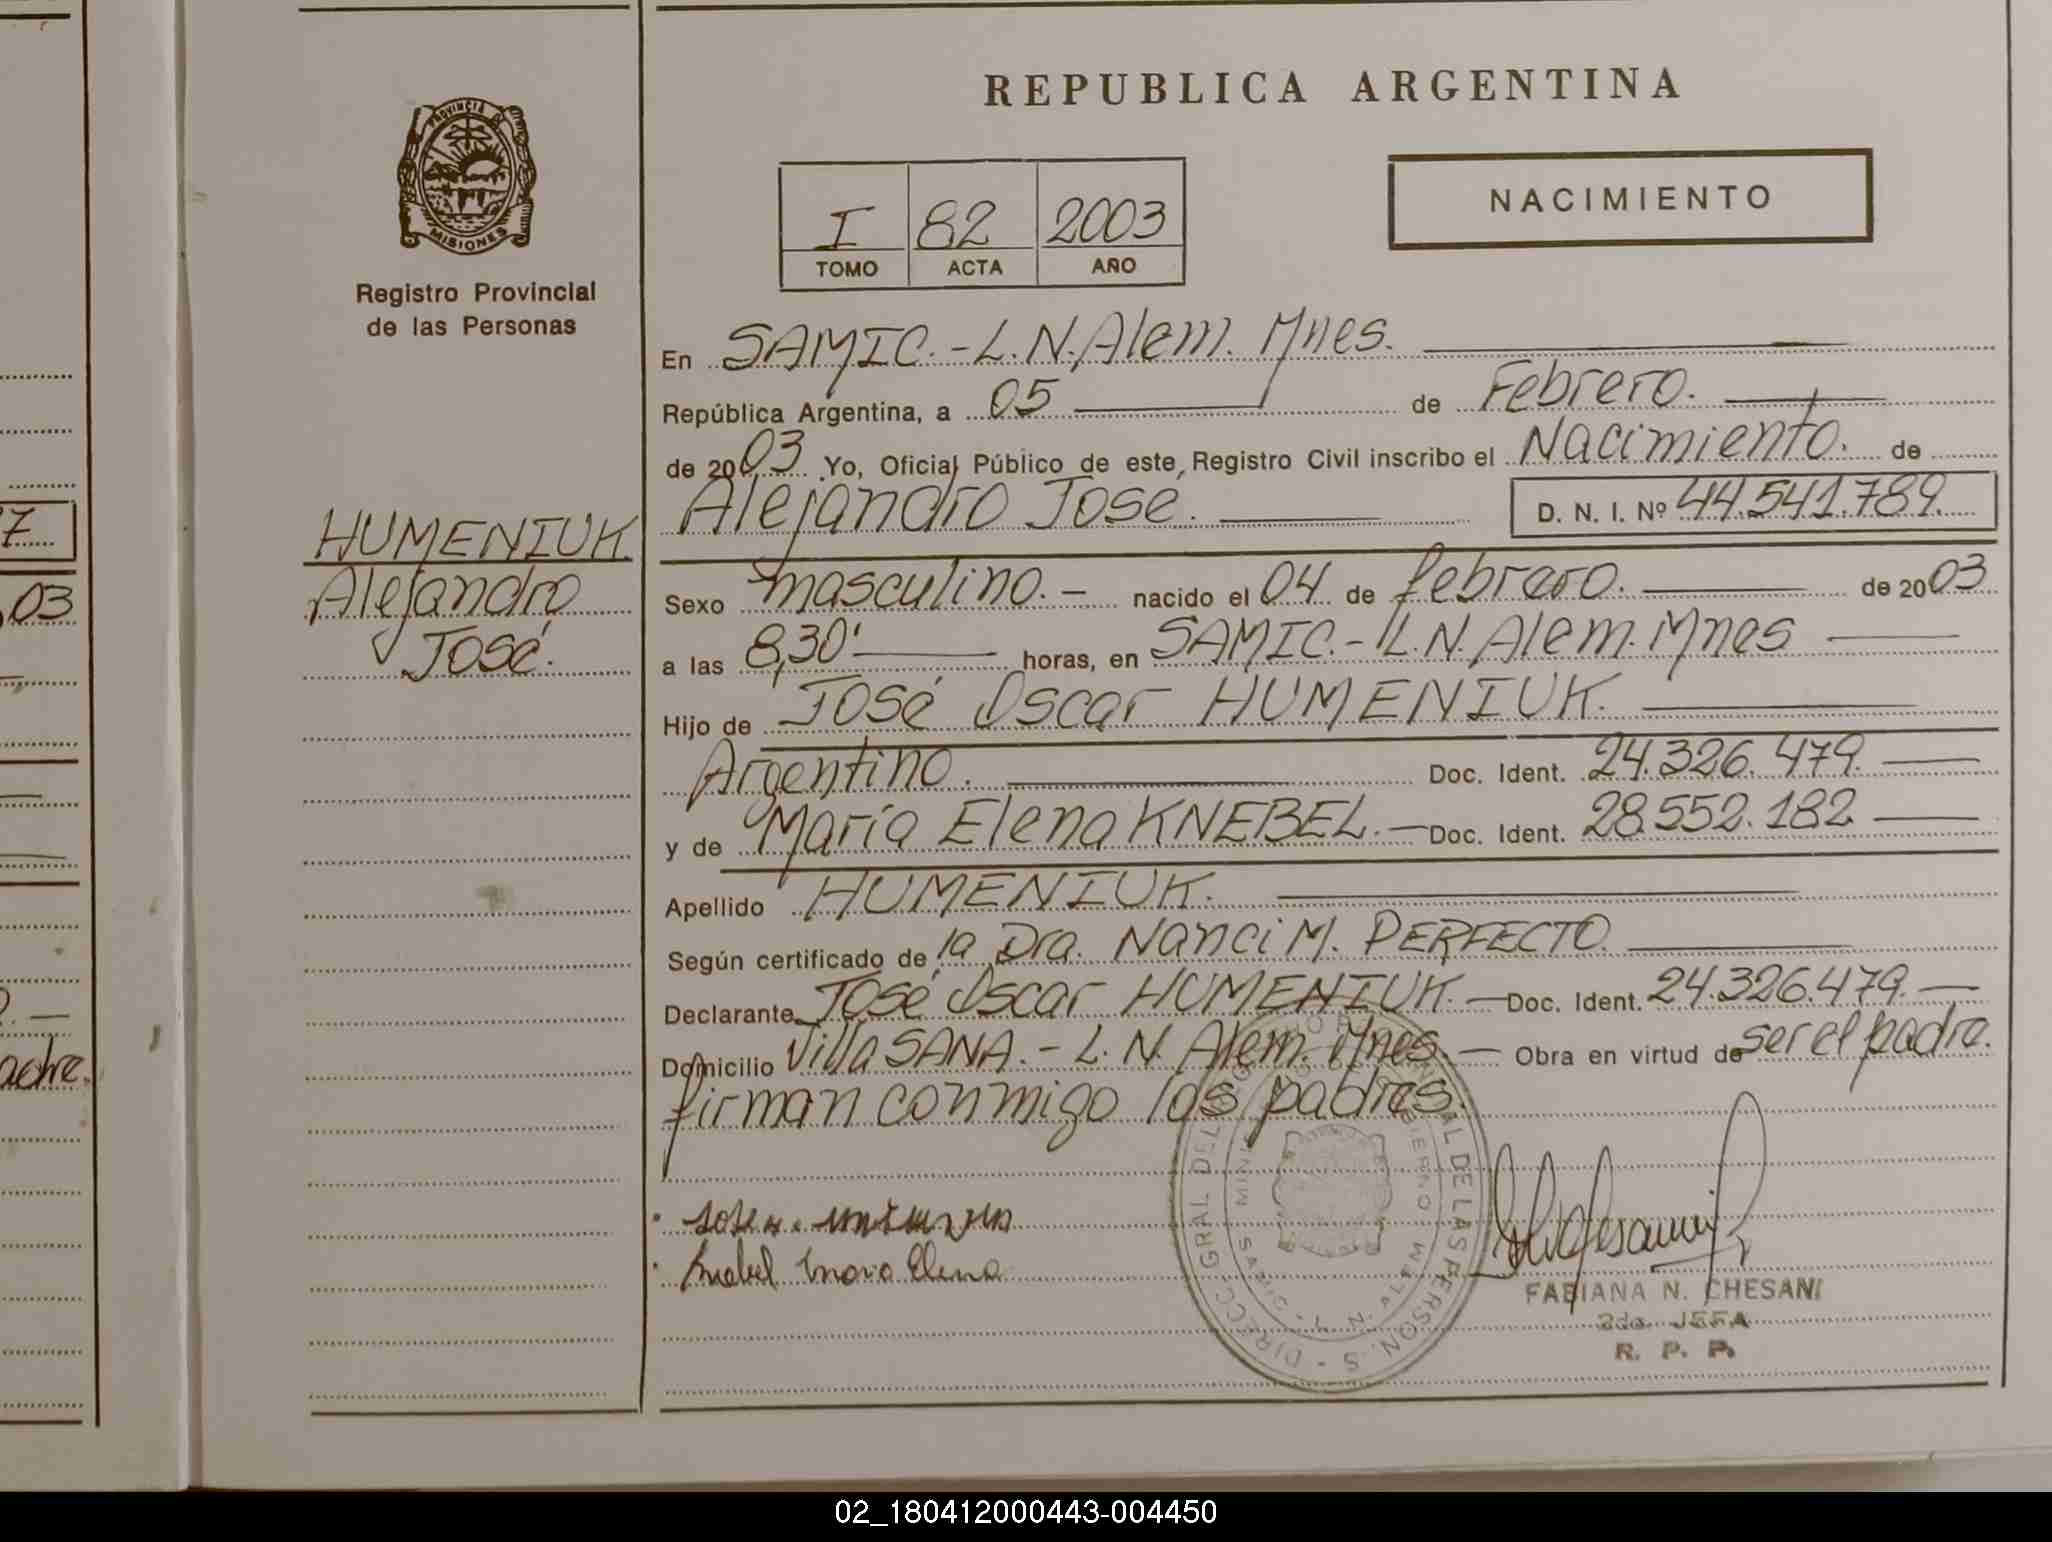 REPUBLICA ARGENTINA
PROVINCIA DE
MISIONES
Registro Provincial
de las Personas
I 82 2003
TOMO ACTA AÑO
NACIMIENTO
En SAMIC.-L.N.Alem. Mnes.
República Argentina, a 05 de Febrero.
de 2003 Yo, Oficial Público de este Registro Civil inscribo el Nacimiento. de
Alejandro José. D. N. I. Nº 44.541.789.
HUMENIUK.
Alejandro
José.
Sexo masculino.- nacido el 04 de febrero. de 2003
a las 8,30' horas, en SAMIC.-L.N.Alem.Mnes
Hijo de José Oscar HUMENIUK.
Argentino. Doc. Ident. 24.326.479.
y de María Elena KNEBEL.- Doc. Ident. 28.552.182
Apellido HUMENIUK.
Según certificado de la Dra. Nanci M. PERFECTO.
Declarante José Oscar HUMENIUK.- Doc. Ident. 24.326.479.-
Domicilio Villa SANA.- L.N. Alem. Mnes.- Obra en virtud de ser el padre.
firman conmigo los padres.
Knebel Maria Elena
FABIANA N. CHESANI
2da. JEFA
R. P. P.
7
03
adre.
02_180412000443-004450